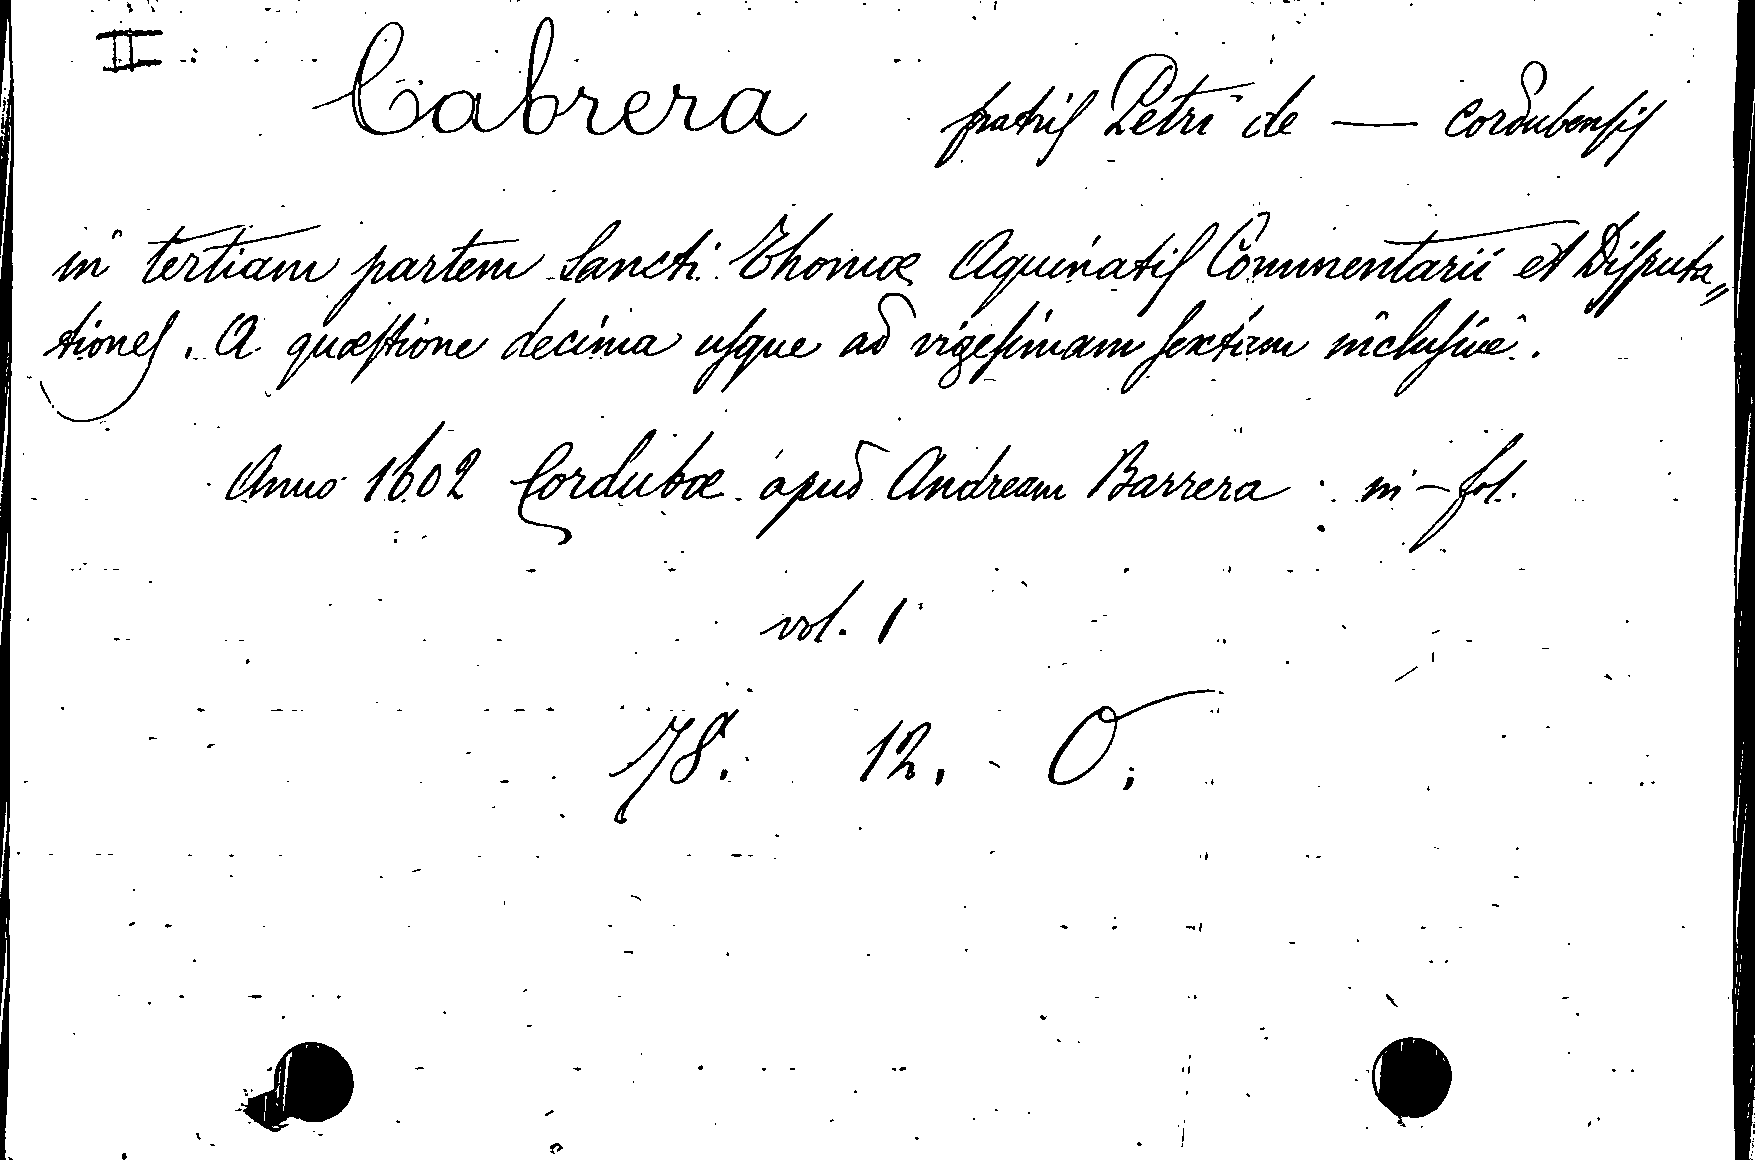 II
Cabrera fratris Petri de — cordubensis
in tertiam partem Sancti Thomæ Aquinatis Commentarii et Disputa„
tiones. A quæstione decima usque ad vigesimam sextam inclusive.
Anno 1602 Cordubæ apud Andream Barrera in-fol.
vol. 1
78. 12. O.